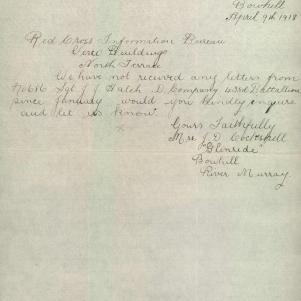 Bowhill
April 9th 1918
Red Cross Information Bureau
Verco Buildings
North Terrace
We have not received any letters from
No 616 Sgt J J Hatch D Company 43rd Battalion
since January would you kindly enquire
and let us know
Yours Faithfully
Mrs J D Cockshell
"Glenride"
Bowhill
River Murray